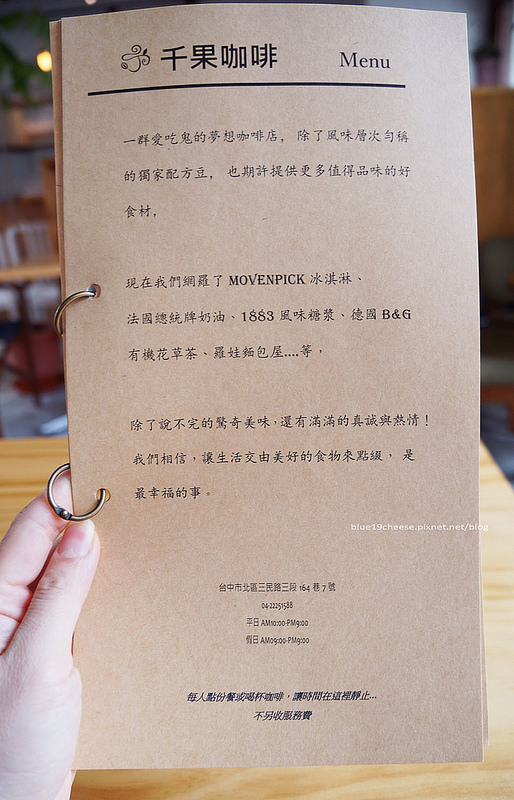 千果咖啡 Menu
一群愛吃鬼的夢想咖啡店， 除了風味層次勻稱
的獨家配方豆， 也期許提供更多值得品味的好
食材，
現在我們網羅了 MOVENPICK 冰淇淋、
法國總統牌奶油、1883 風味糖漿、德國 B&G
有機花草茶、羅娃麵包屋....等，
除了說不完的驚奇美味，還有滿滿的真誠與熱情！
我們相信，讓生活交由美好的食物來點綴， 是
最幸福的事。
blue19cheese.pixnet.net/blog
台中市北區三民路三段 164 巷 7 號
04-22251588
平日 AM10:00-PM9:00
假日 AM09:00-PM9:00
每人點份餐或喝杯咖啡，讓時間在這裡靜止...
不另收服務費